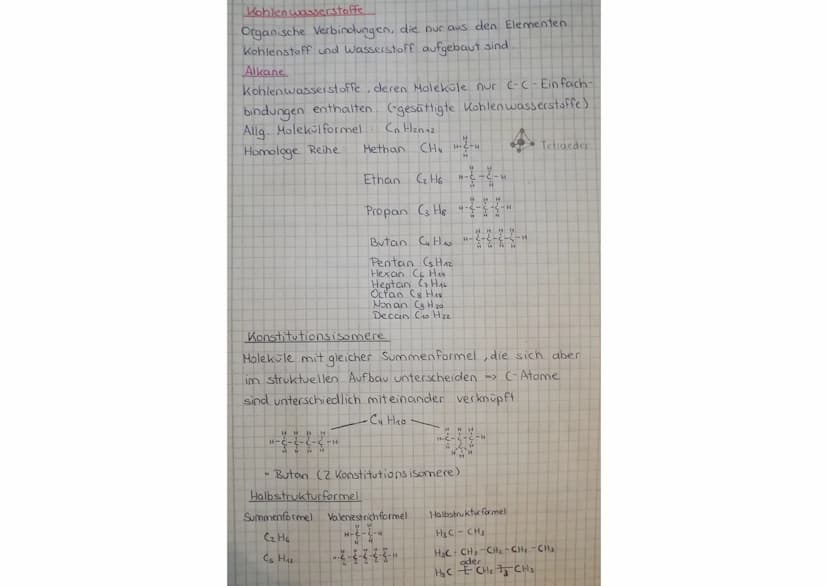 Kohlenwasserstoffe
Organische Verbindungen, die nur aus den Elementen
Kohlenstoff und Wasserstoff aufgebaut sind
Alkane
Kohlenwasserstoffe, deren Moleküle nur C-C-Einfach-
bindungen enthalten (→gesättigte Kohlenwasserstoffe)
Allg. Molekülformel CnH2n+2
Homologe Reihe Methan CH4 Tetraeder
Ethan C2H6
Propan C3H8
Butan C4H10
Pentan C5H12
Hexan C6H14
Heptan C7H16
Octan C8H18
Nonan C9H20
Decan C10H22
Konstitutionsisomere
Moleküle mit gleicher Summenformel, die sich aber
im struktuellen Aufbau unterscheiden => C-Atome
sind unterschiedlich miteinander verknüpft
C4H10
- Butan (2 Konstitutionsisomere)
Halbstrukturformel
Summenformel Valenzstrichformel Halbstrukturformel
C2H6 H3C - CH3
C5H12 H3C - CH2 - CH2 - CH2 - CH3
oder
H3C [CH2]3 CH3